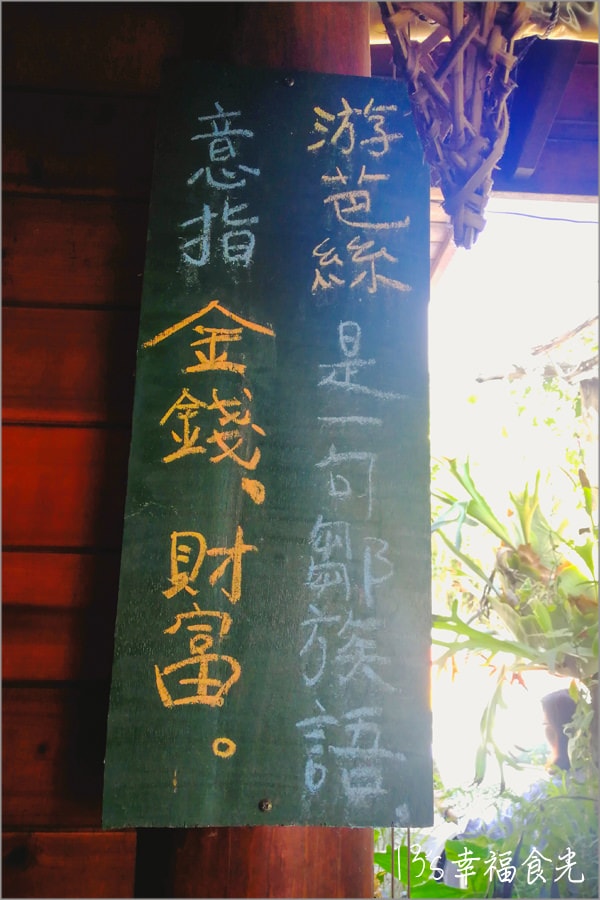 游芭絲是一句鄒族語,
意指金錢、財富。
13s幸福食光